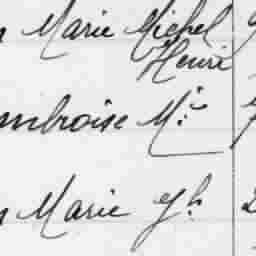 n Marie Michel
Henri
mbroise M.ie
n Marie Jh.